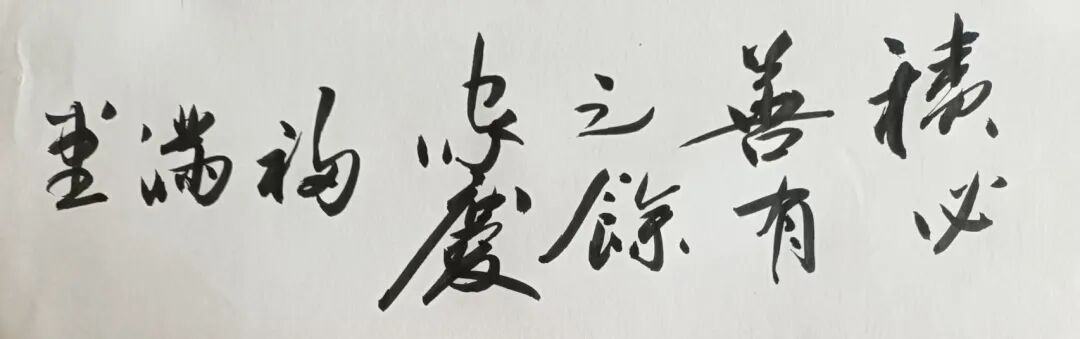 積善之家
必有餘慶
福滿堂